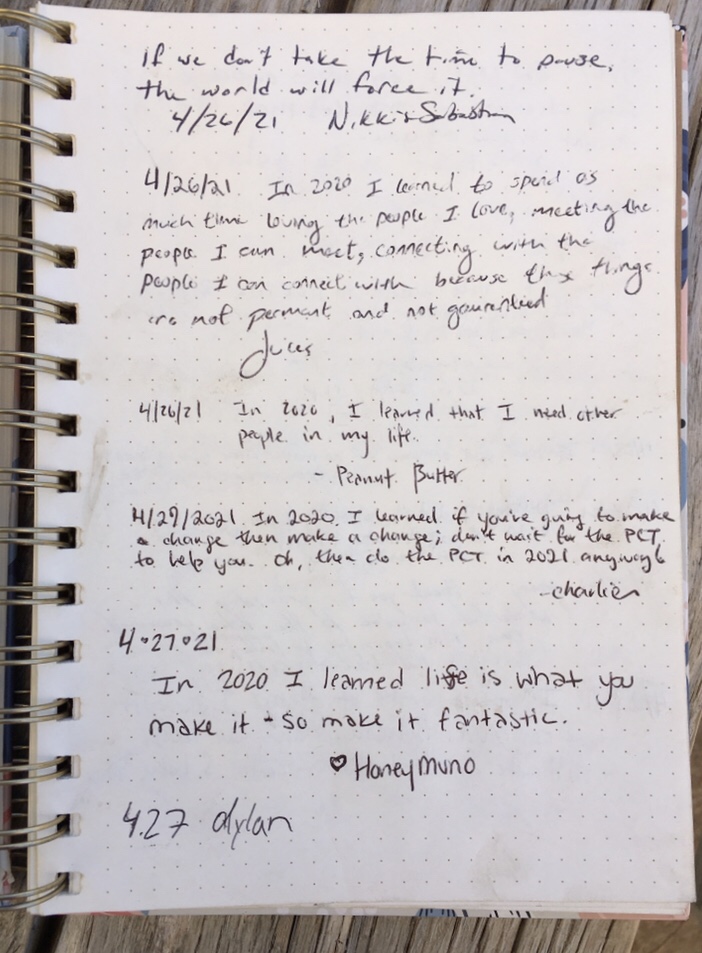 If we don't take the time to pause,
the world will force it.
4/26/21 Nikki & Sebastian
4/26/21 In 2020 I learned to spend as
much time loving the people I love, meeting the
people I can meet, connecting with the
people I can connect with because these things
are not permant and not gaurenteed
Jules
4/26/21 In 2020, I learned that I need other
people in my life.
- Peanut Butter
4/27/2021 In 2020 I learned if you're going to make
a change then make a change; don't wait for the PCT
to help you. Oh, then do the PCT in 2021 anyway
-charlie
4•27•21
In 2020 I learned life is what you
make it - so make it fantastic.
♡ Honey Muno
4.27 dylan